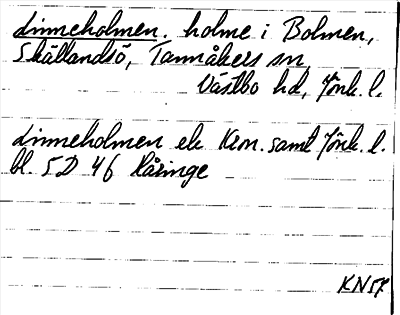 Linneholmen. holme i Bolmen,
Skällandsö, Tannåkers sn
Västbo hd, Jönk. l.
Linneholmen ek Kron. samt Jönk. l.
bl. 5D 4b Råringe
KN57